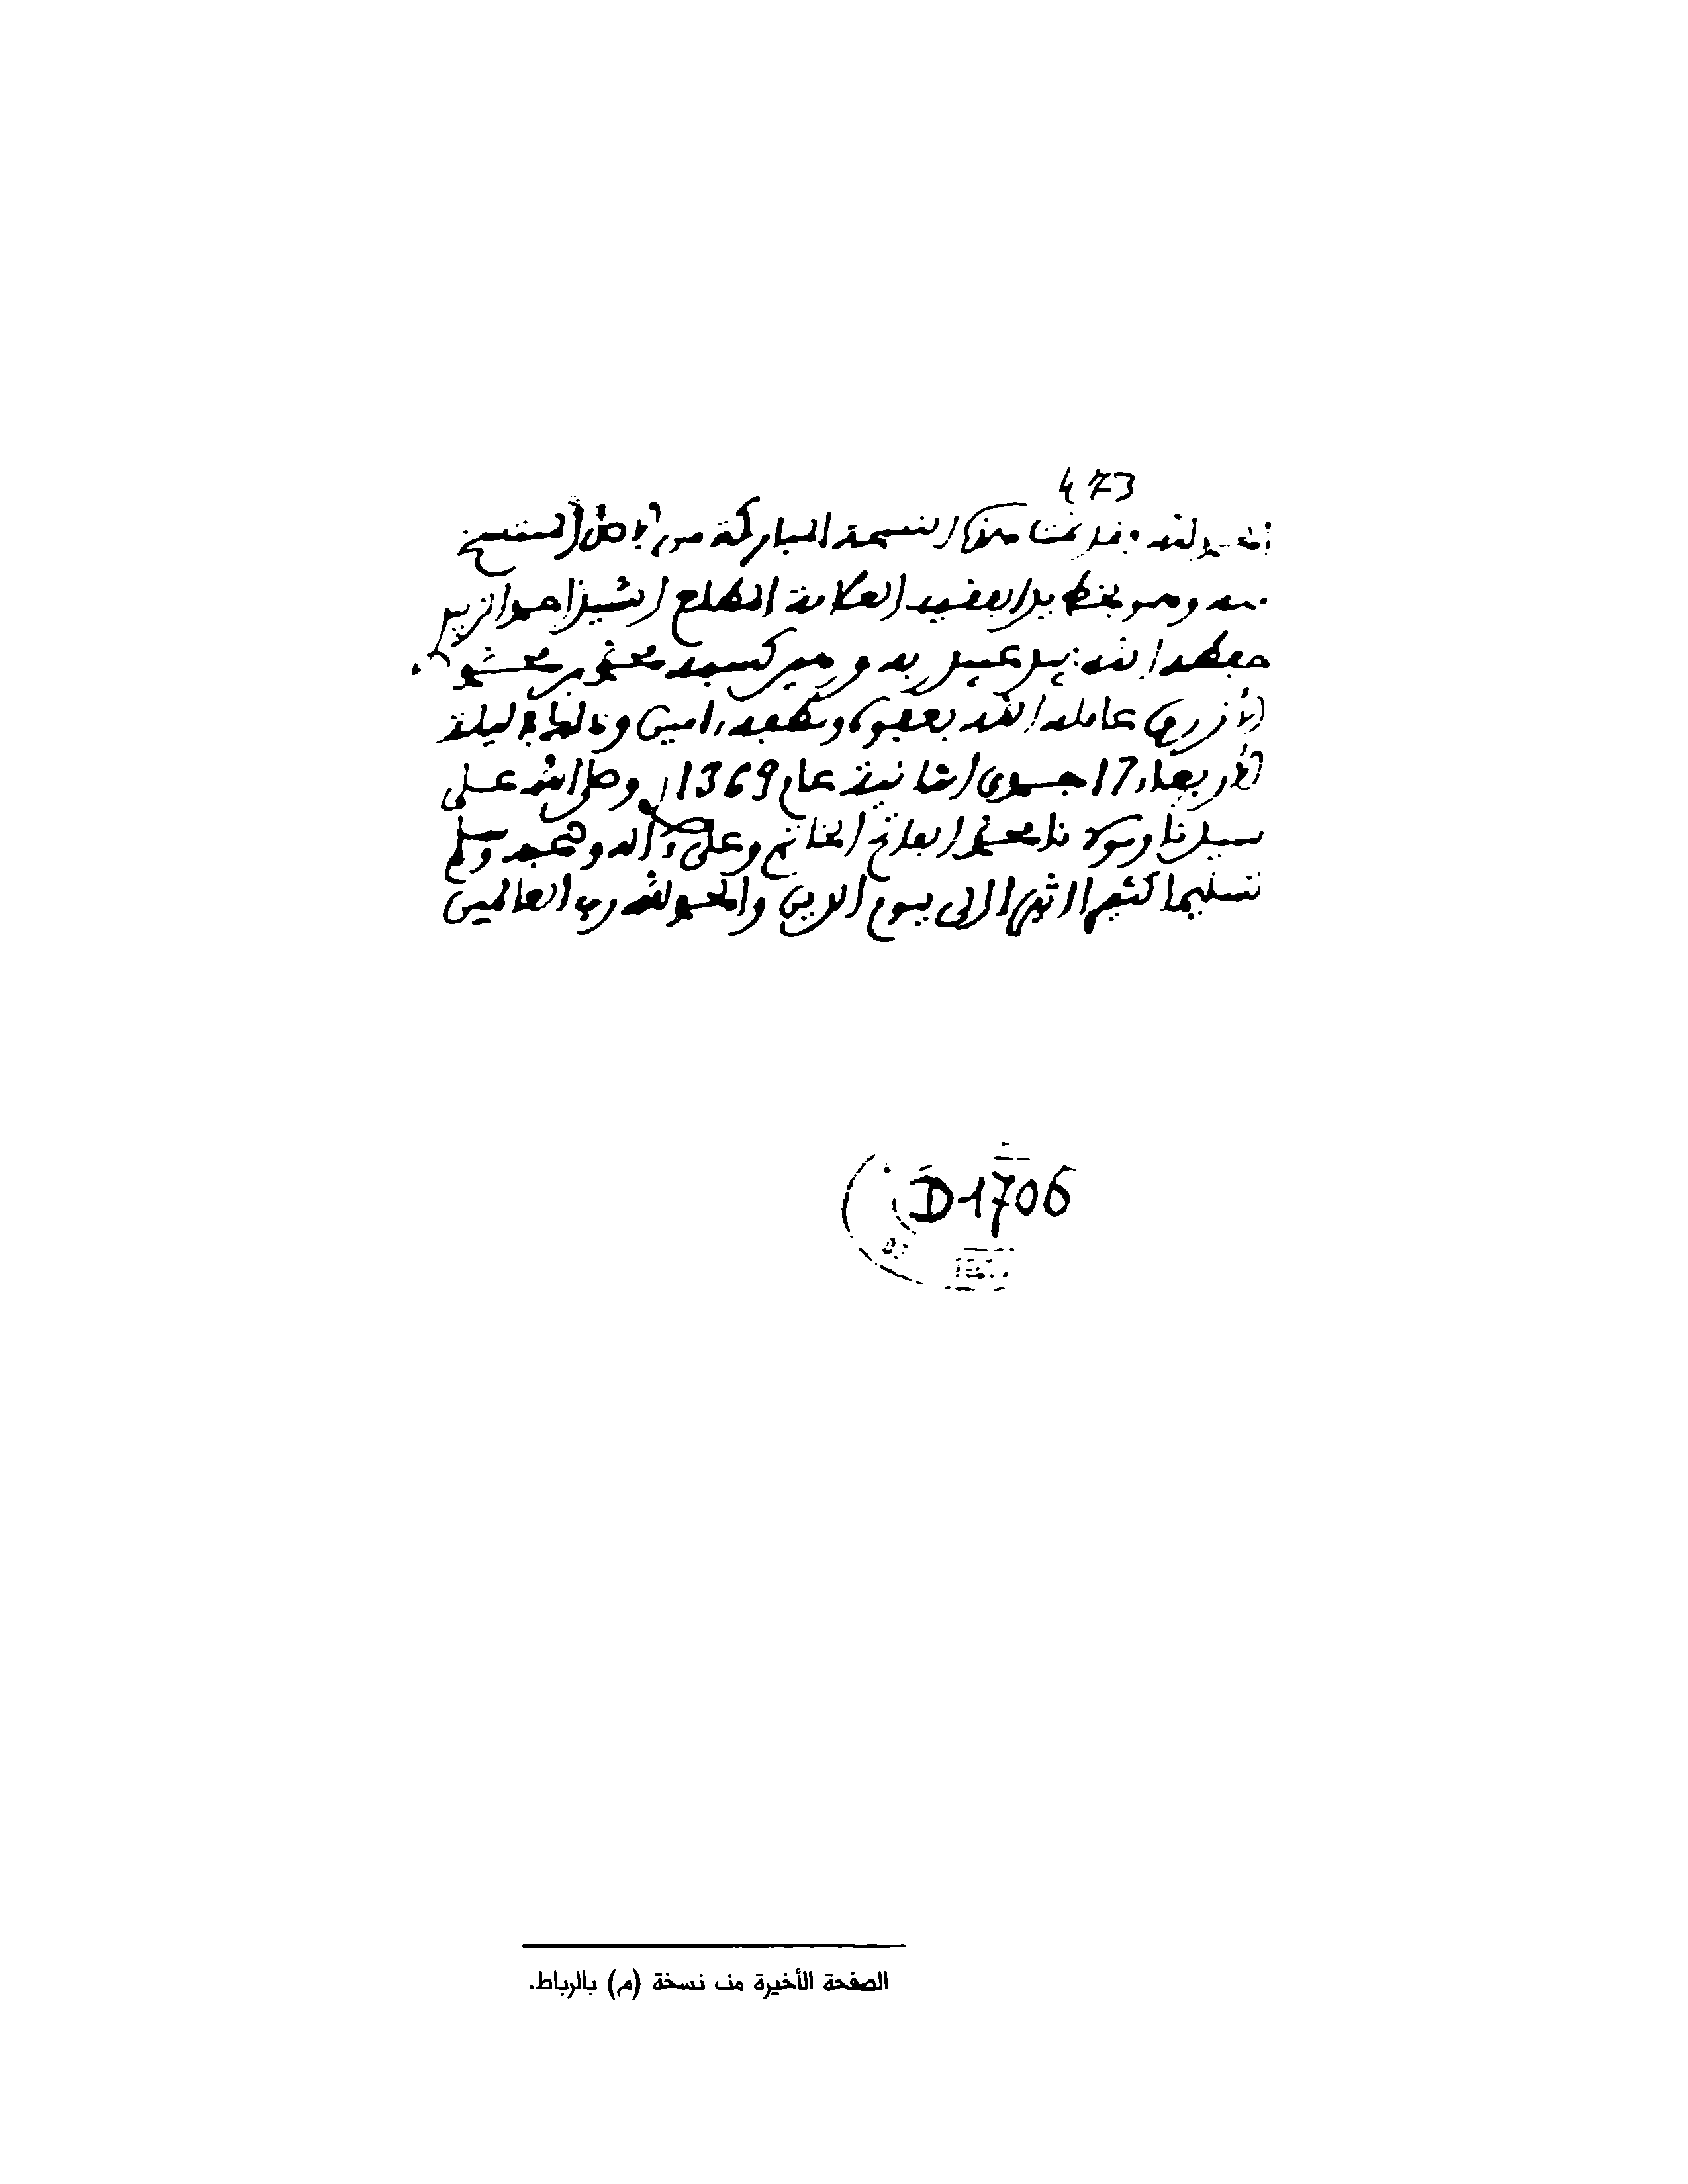 473
الحمد لله وقد تمت هذه النسخة المباركة من الاصل المنتسخ
منه وهو بخط يد الفقيه العلامة المطلع الشيخ احمد
حفظه الله بيد عبيد ربه محمد بن محمد
عامله الله بعفوه ولطفه ءامين وذلك في ليلة
الاربعاء 17 جمدى الثانية عام 1369 وصلى الله على
سيدنا ومولانا محمد الفاتح الخاتم وعلى ءاله وصحبه وسلم
تسليما كثيرا اثيرا الى يوم الدين والحمد لله رب العالمين
D1706
الصفحة الأخيرة من نسخة (م) بالرباط.